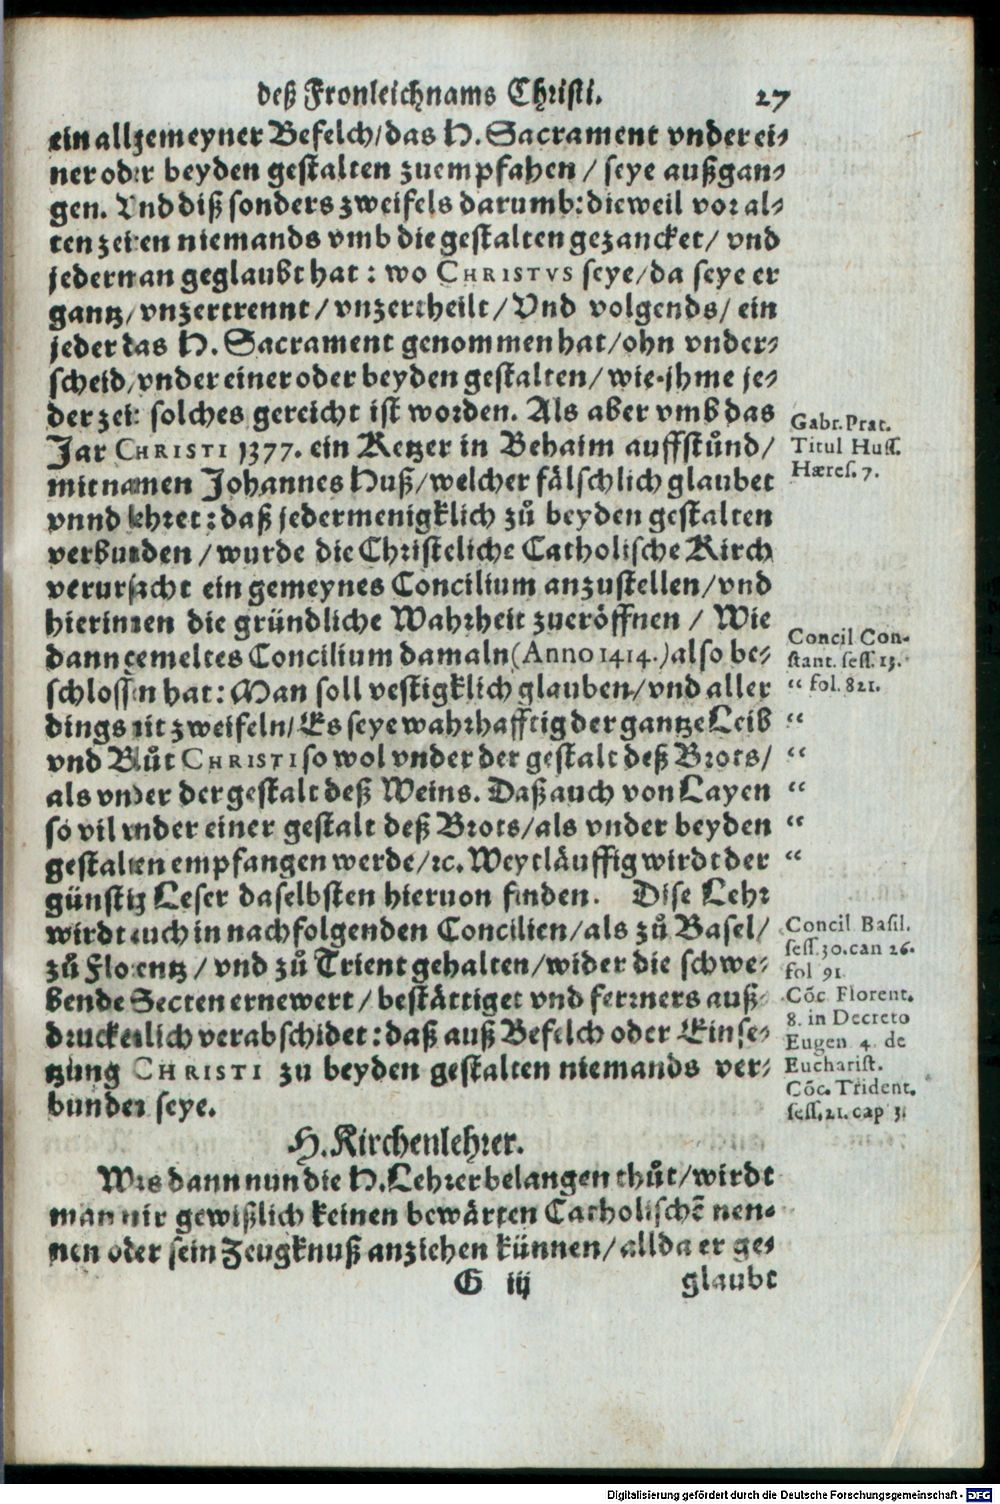 deß Fronleichnams Christi. 27
ein allgemeyner Befelch/das H. Sacrament vnder ei-
ner oder beyden gestalten zuempfahen / seye außgan-
gen. Vnd diß sonders zweifels darumb: dieweil vor al-
ten zeiten niemands vmb die gestalten gezancket/ vnd
jederman geglaubt hat : wo CHRISTVS seye/da seye er
gantz/vnzertrennt/vnzertheilt/Vnd volgends/ ein
jeder das H. Sacrament genommen hat/ohn vnder-
scheid/vnder einer oder beyden gestalten/wie jhme je-
der zeit solches gereicht ist worden. Als aber vmb das
Jar CHRISTI 1377. ein Ketzer in Behaim auffstůnd/
mit namen Johannes Huß/welcher fälschlich glaubet
vnnd lehret: daß jedermenigklich zů beyden gestalten
verbunden / wurde die Christeliche Catholische Kirch
verursacht ein gemeynes Concilium anzustellen/vnd
hierinnen die gründliche Wahrheit zueröffnen / Wie
dann gemeltes Concilium damaln (Anno 1414.) also be-
schlossen hat: Man soll vestigklich glauben/vnd aller
dings nit zweifeln/Es seye wahrhafftig der gantze Leib
vnd Blůt CHRISTI so wol vnder der gestalt deß Brots/
als vnder der gestalt deß Weins. Daß auch von Layen
so vil vnder einer gestalt deß Brots/als vnder beyden
gestalten empfangen werde/ꝛc. Weytläuffig wirdt der
günstig Leser daselbsten hieruon finden. Dise Lehr
wirdt auch in nachfolgenden Concilien/als zů Basel/
zů Florentz / vnd zů Trient gehalten/wider die schwe-
bende Secten ernewert / bestättiget vnd ferrners auß-
druckenlich verabschidet: daß auß Befelch oder Einse-
tzung CHRISTI zu beyden gestalten niemands ver-
bunden seye.
Gabr. Prat.
Titul Huss.
Hæres. 7.
Concil Con-
stant. sess. 13.
“ fol. 821.
“
“
“
“
“
Concil Basil.
sess. 30. can 26.
fol 91
Cōc. Florent.
8. in Decreto
Eugen 4 de
Eucharist.
Cōc. Trident.
sess. 21. cap 3.
H. Kirchenlehrer.
Was dann nun die H. Lehrer belangen thůt/wirdt
man mir gewißlich keinen bewärten Catholischē nen-
nen oder sein Zeugknuß anziehen künnen/allda er ge-
G iij glaubt
Digitalisierung gefördert durch die Deutsche Forschungsgemeinschaft - DFG